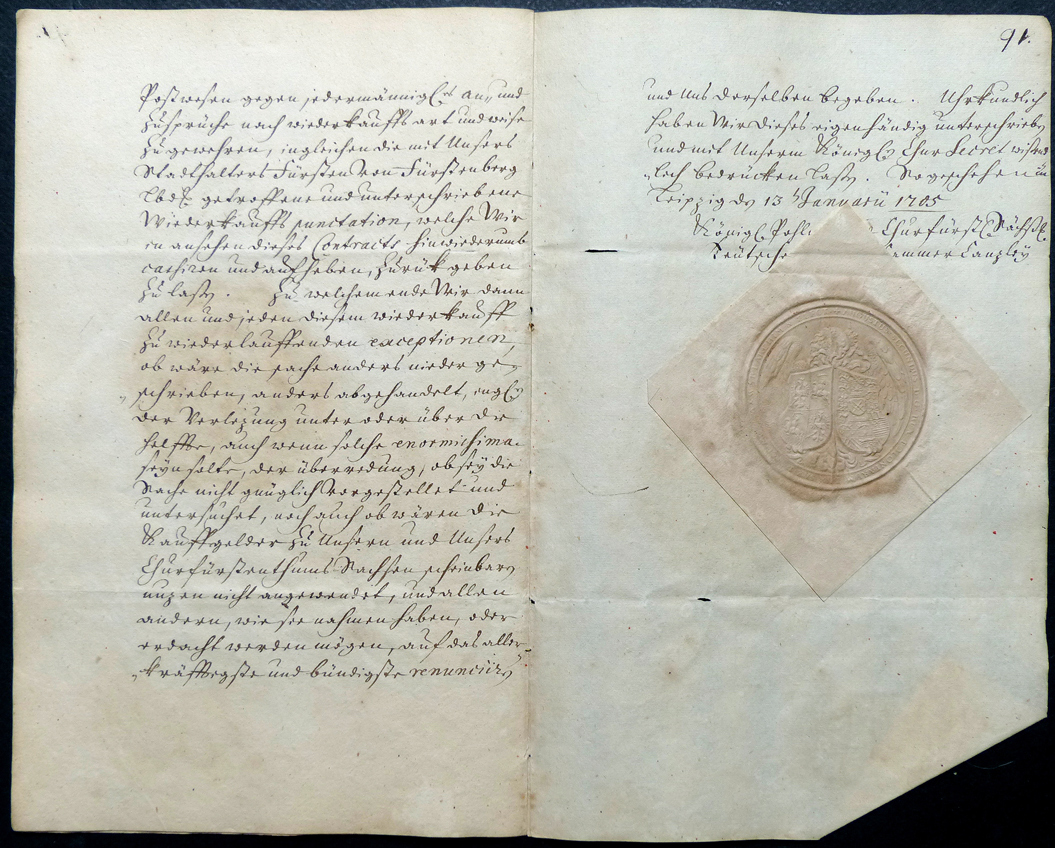 Postwesen gegen jedermännigl. an- und
Zusprüche nach wiederkauffs art und weise
zu gewehren, ingleichen die mit Unsers
Stadthalters Fürsten von Fürstenberg
Lbd. getroffene und unterschriebene
Wiederkauffs punctation, welche Wir
in ansehen dieses Contracts hinwiederumb
cassiren und aufheben, zurück geben
zu laßen. Zu welchem ende Wir dann
allen und jeden diesem wiederkauff
zu wiederlauffenden exceptionen,
ob wäre die sache anders nieder ge-
schrieben, anders abgehandelt, ingl.
der Verlezung unter oder über die
helffte, auch wenn solche enormissima
seyn solte, der überredung, ob sey die
Sache nicht gnüglich vorgestellet und
untersuchet, noch auch ob wären die
Kauffgelder zu Unsern und Unsers
Churfürstenthums Sachsen scheinbarn
nuzen nicht angewendet, und allen
andern, wie sie nahmen haben, oder
erdacht werden mögen, auf das aller-
kräfftigste und bündigste renunciiren
91.
und Uns derselben begeben. Uhrkundlich
haben Wir dieses eigenhändig unterschrieben
und mit Unserm Königl. Chur Secret
-lich bedrücken laßen. So geschehen in
Leipzig den 13 Januarii 1705
Königl. Pohl. Churfürstl. Sächß.
Teutsche Cammer Canzley